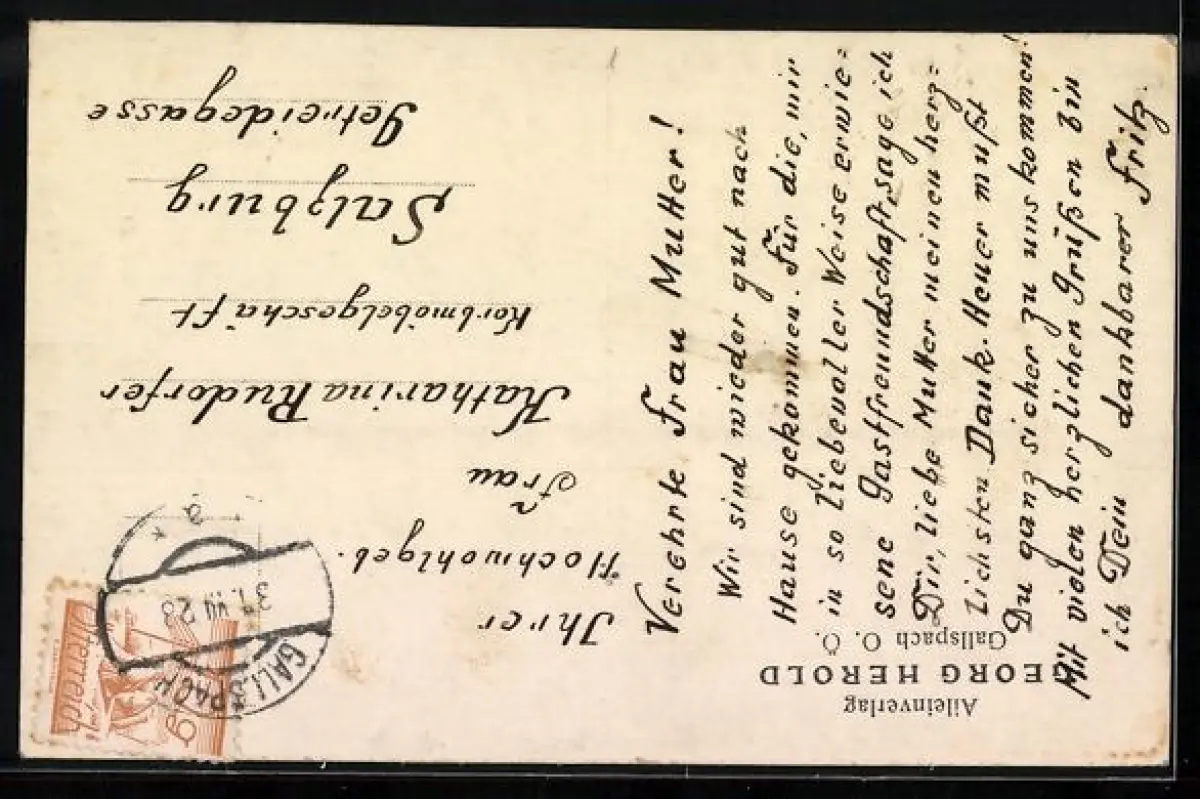 Verehrte Frau Mutter!
Wir sind wieder gut nach
Hause gekommen. Für die, mir
in so liebevoller Weise erwie=
sene Gastfreundschaft, sage ich
Dir, liebe Mutter meinen herz=
lichsten Dank. Heuer mußt
Du ganz sicher zu uns kommen!
Mit vielen herzlichen Grüßen bin
ich Dein dankbarer Fritz.
Alleinverlag
GEORG HEROLD
Gallspach O. Ö.
Ihrer
Hochwohlgeb.
Frau
Katharina Rudorfer
Korbmöbelgeschäft
Salzburg
Getreidegasse
GALLSPACH
31. VII 28
* a *
Österreich